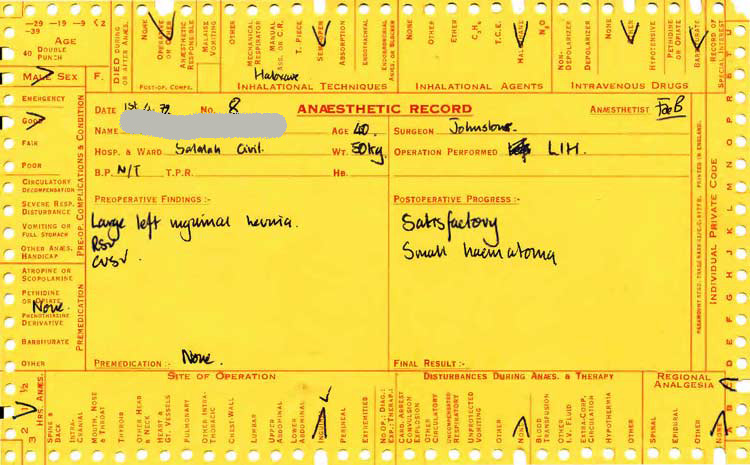 -29 -19 -9 < 2
-39
AGE
40 DOUBLE PUNCH
MALE SEX F.
DIED DURING OR AFTER ANÆS.
NONE
OPERATIVE OR OTHER
ANÆSTHETIC RESPONSIBLE
MALAISE VOMITING
OTHER
POST-OP. COMPS.
MECHANICAL RESPIRATOR
MANUAL ASS. OR C.R.
T. PIECE
ABSORPTION
ENDOTRACHEAL
ENDOBRONCHIAL ANÆS. OR BLOCKER
Halovave
INHALATIONAL TECHNIQUES
NONE
OTHER
ETHER
C₃H₆
T.C.E.
HALOTHANE
N₂O
INHALATIONAL AGENTS
NON-DEPOLARIZER
DEPOLARIZER
NONE
OTHER
HYPOTENSIVE
PETHIDINE OR OPIATE
BARBITURATE
INTRAVENOUS DRUGS
RECORD OF SPECIAL INTEREST
PRE-OP. COMPLICATIONS & CONDITION
EMERGENCY
GOOD
FAIR
POOR
CIRCULATORY DECOMPENSATION
SEVERE RESP. DISTURBANCE
VOMITING OR FULL STOMACH
OTHER ANÆS. HANDICAP
PREMEDICATION
ATROPINE OR SCOPOLAMINE
PETHIDINE OR OPIATE
None.
PHENOTHIAZINE DERIVATIVE
BARBITURATE
OTHER
DATE 1st 4. 72 No. 8 ANÆSTHETIC RECORD ANÆSTHETIST
NAME AGE 40. SURGEON Johnstone.
HOSP. & WARD Salalah Civil. WT. 50kg. OPERATION PERFORMED LIH.
B.P. N/T T.P.R. HB.
PREOPERATIVE FINDINGS :- POSTOPERATIVE PROGRESS :-
Large left inguinal hernia. Satisfactory
RS✓ Small haematoma
CVS✓
PREMEDICATION :- None. FINAL RESULT :-
PRINTED IN ENGLAND.
INDIVIDUAL PRIVATE CODE
A B C D E F G H J
HRS. ANÆS.
3 2 1 ½
SITE OF OPERATION
SPINE & BACK
INTRA-CRANIAL
MOUTH, NOSE & THROAT
THYROID
OTHER HEAD & NECK
HEART & GT. VESSELS
PULMONARY
OTHER INTRA-THORACIC
CHEST-WALL
LUMBAR
UPPER ABDOMINAL
LOWER ABDOMINAL
INGUINAL
PERINEAL
EXTREMITIES
DISTURBANCES DURING ANÆS. & THERAPY
CARD. ARREST
CONVULSION
EXPLOSION
OTHER CIRCULATORY
UNCOMPENSATED RESPIRATORY
UNPROTECTED VOMITING
OTHER
NONE
BLOOD TRANSFUSION
OTHER I.V. FLUID
EXTRA-CORP. CIRCULATION
HYPOTHERMIA
OTHER
REGIONAL ANALGESIA
SPIRAL
EPIDURAL
OTHER
NONE